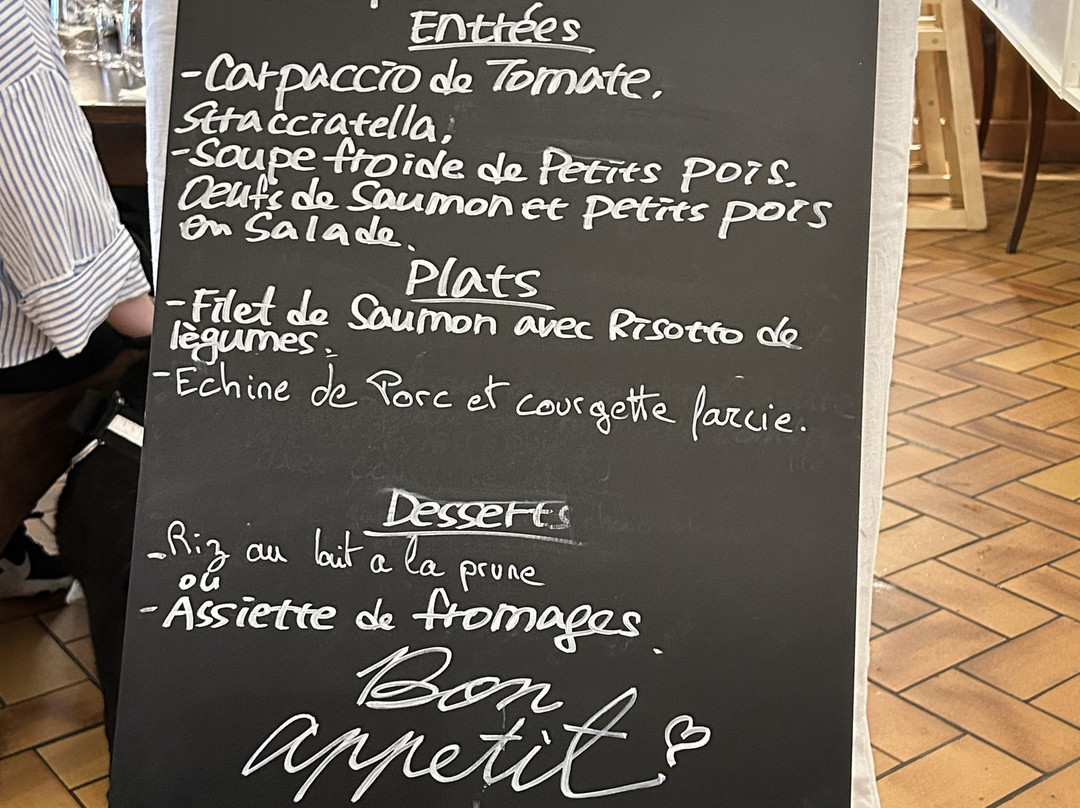 Entrées
-Carpaccio de Tomate,
Stracciatella,
-Soupe froide de Petits pois.
Oeufs de Saumon et petits pois
en Salade.
Plats
-Filet de Saumon avec Risotto de
lègumes.
-Echine de Porc et courgette farcie.
Desserts
-Riz au lait a la prune
ou
-Assiette de fromages.
Bon
appetit